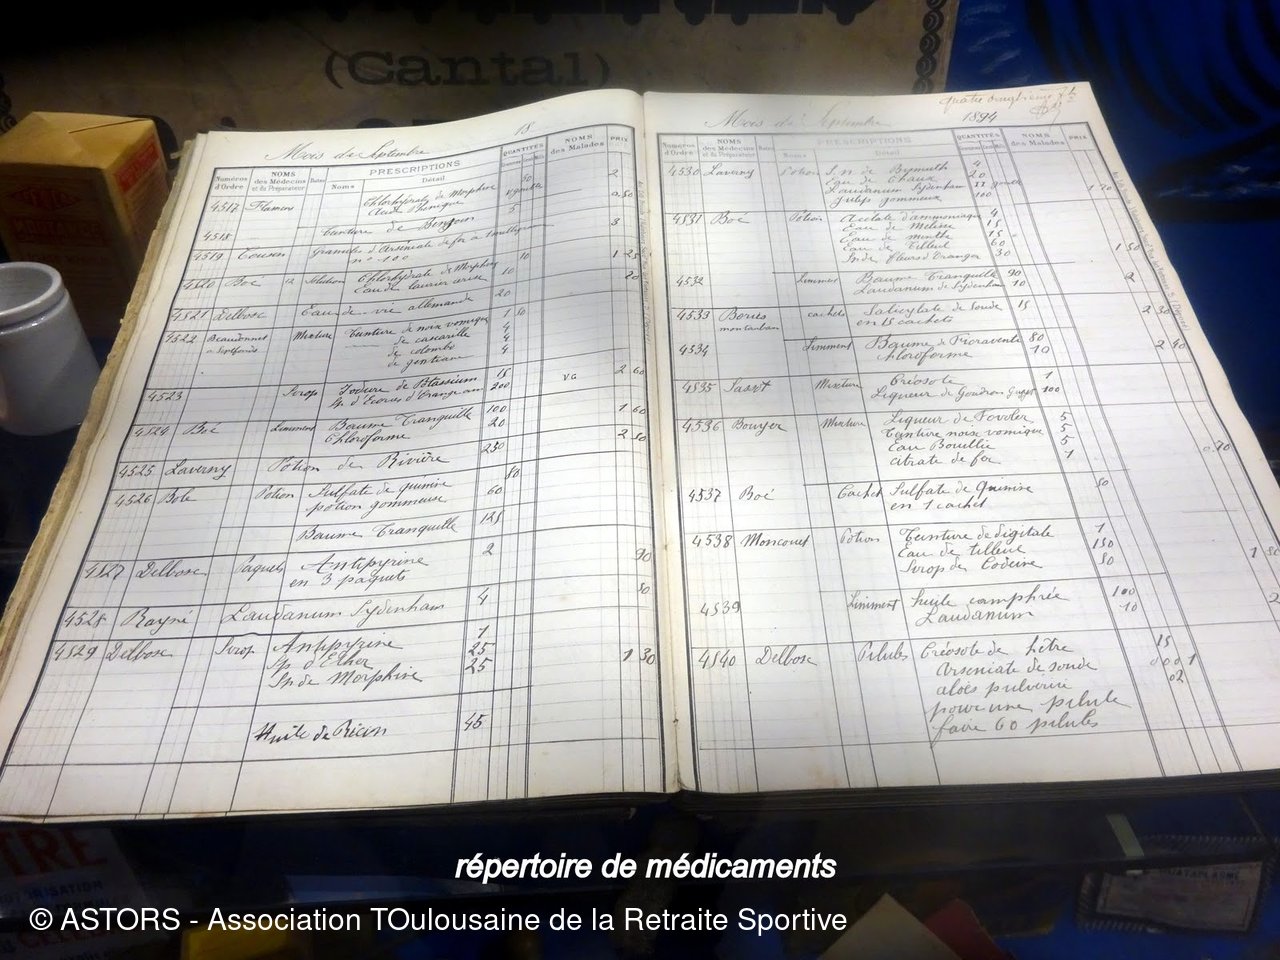 (Cantal)
18
Mois de Septembre
Numéros d'Ordre
NOMS des Médecins et du Préparateur
Dates
PRESCRIPTIONS
Noms
Détail
QUANTITÉS
NOMS des Malades
PRIX
4517 Flamen Chlorhydrate de Morphine 50 2
Eau Phéniquée
4518 Teinture de Benjoin 5 0.50
4519 Cousin Granules d'Arseniate de fer à 1 milligram 3
n° 100
4520 Boé 12 Solution Chlorhydrate de Morphine 10 1 25
Eau de laurier cerise 10
4521 Delbosc Eau de vie allemande 20 20
4522 Beaudonnet Mixture Teinture de noix vomique 1 50
à Septfonds de cascarille 4
de colombo 4
de gentiane 4
4523 Sirop Iodure de Potassium 15 VG 2 60
Sp d'Ecorces d'Oranges am 200
4524 Boé Liniment Baume Tranquille 100 1 60
Chloroforme 20
4525 Laverny Potion de Rivière 250 2 50
4526 Boté Potion Sulfate de quinine 80
potion gommeuse 60
Baume Tranquille 125
4527 Delbosc Paquets Antipyrine 2 90
en 3 paquets
4528 Rayné Laudanum Sydenham 4 50
4529 Delbosc Sirop Antipyrine 1 1 30
Sp d'Ether 25
Sp de Morphine 25
Huile de Ricin 45
quatre vingtième f
Mois de Septembre 1894
Numéros d'Ordre
NOMS des Médecins et du Préparateur
Dates
PRESCRIPTIONS
Noms
Détail
QUANTITÉS
NOMS des Malades
PRIX
4530 Laverny Potion S. n. de Bismuth 4
Eau de Chaux 20
Laudanum Sydenham II goutte
Julep gommeux 100 1 20
4531 Boé Potion Acétate d'ammoniaque 4
Eau de Mélisse 15
Eau de menthe 15
Eau de Tilleul 60
Sp de fleurs d'Oranger 30 1 50
4532 Liniment Baume Tranquille 90
Laudanum de Sydenham 10 2
4533 Bories cachets Salicylate de soude 15 2 30
montauban en 15 cachets
4534 Liniment Baume de Fioraventi 80
Chloroforme 10 2 40
4535 Mixture Créosote 1
Liqueur de Goudron Guyot 100
4536 Bouyer Mixture Liqueur de Fowler 5
Teinture noix vomique 5
Eau Bouillie 5
citrate de fer 1 0.70
4537 Boé Cachet Sulfate de Quinine 50
en 1 cachet
4538 Moncouet Potion Teinture de digitale 1
Eau de tilleul 150
Sirop de Codéine 50 1 50
4539 Liniment huile camphrée 100
Laudanum 10 2
4540 Delbosc Pilules Créosote de hêtre 15
Arseniate de soude 0 001
aloès pulvérisé 02
pour une pilule
faire 60 pilules
répertoire de médicaments
© ASTORS - Association TOulousaine de la Retraite Sportive